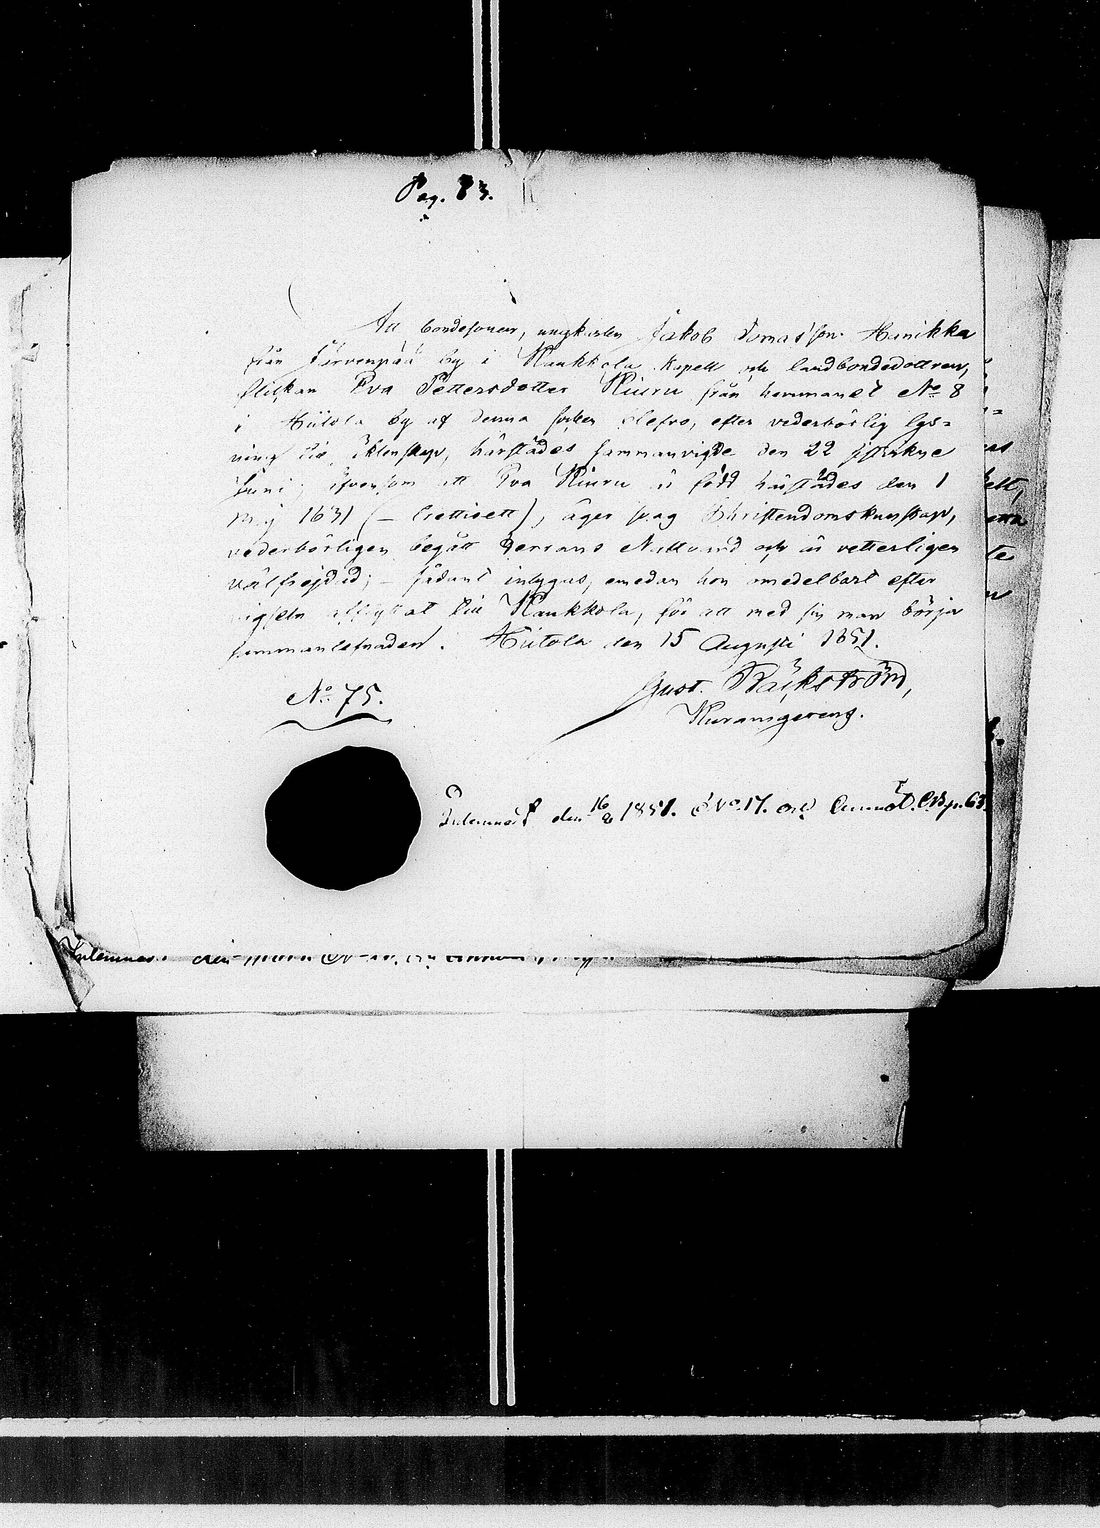 Pag. 83.
Att bondesonen, ungkarlen Jakob Tomasson Hanikka
från Järvenpää by i Kaukkola Kapell och landbondedottren,
flickan Eva Pettersdotter Kiuru från hemmanet No 8
i Hiitola by af denna socken blefvo, efter vederbörlig lys-
ning till äktenskap, härstädes sammanvigde den 22 sistlidne
Juni; äfvensom att Eva Kiuru är född härstädes den 1
Maj 1831 (– trettioett), äger svag Christendomskunskap,
vederbörligen begått Herrans Nattvard och är vetterligen
välfrejdad; – sådant intygas, emedan hon omedelbart efter
vigseln afflyttat till Kaukkola, för att med sin man börja
sammanlefnaden. Hiitola den 15 Augusti 1851.
No 75.
Gust. Bäckström,
Inlemnadt den 16/8 1851. No 17. p. 63.
Inlemnad